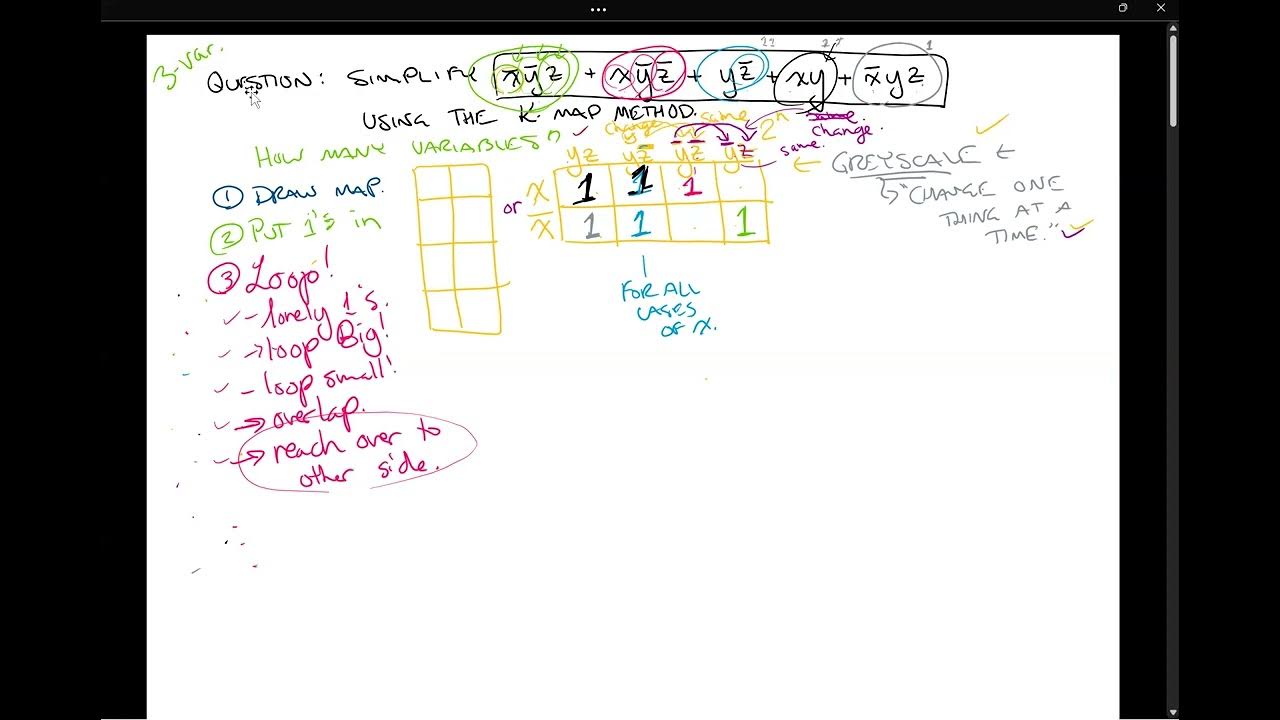 3-var.
QUESTION: SIMPLIFY x̄ȳz + xȳz̄ + yz̄ + xy + x̄yz
USING THE K-MAP METHOD.
HOW MANY VARIABLES?
change same 2ⁿ change.
same.
yz yz̄ ȳz̄ ȳz
← GREYSCALE ←
"CHANGE ONE
THING AT A
TIME."
① DRAW MAP.
② PUT 1's in
or
x 1 1 1
x̄ 1 1 1
FOR ALL
CASES
OF x.
③ Loop!
- lonely 1's.
→ loop Big!
- loop small!
→ overlap.
→ reach over to
other side.